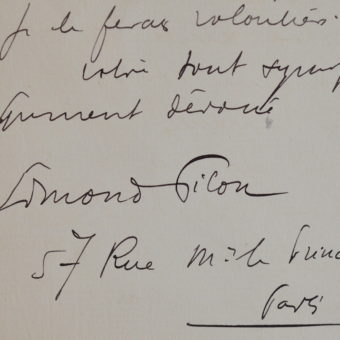 Je le ferai volontiers.
votre tout symp
quement dévoué
Edmond Pilon
57 Rue Mr le Princ
Paris